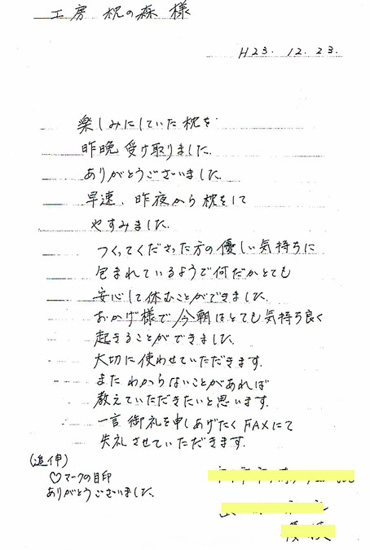 工房 枕の森 様
H23. 12. 23.
楽しみにしていた枕を
昨晩受け取りました。
ありがとうございました。
早速、昨夜から枕をして
やすみました。
つくってくださった方の優しい気持ちに
包まれているようで何だかとても
安心して休むことができました。
おかげ様で今朝はとても気持ち良く
起きることができました。
大切に使わせていただきます。
またわからないことがあれば
教えていただきたいと思います。
一言御礼を申しあげたくFAXにて
失礼させていただきます。
(追伸)
♡マークの目印
ありがとうございました。